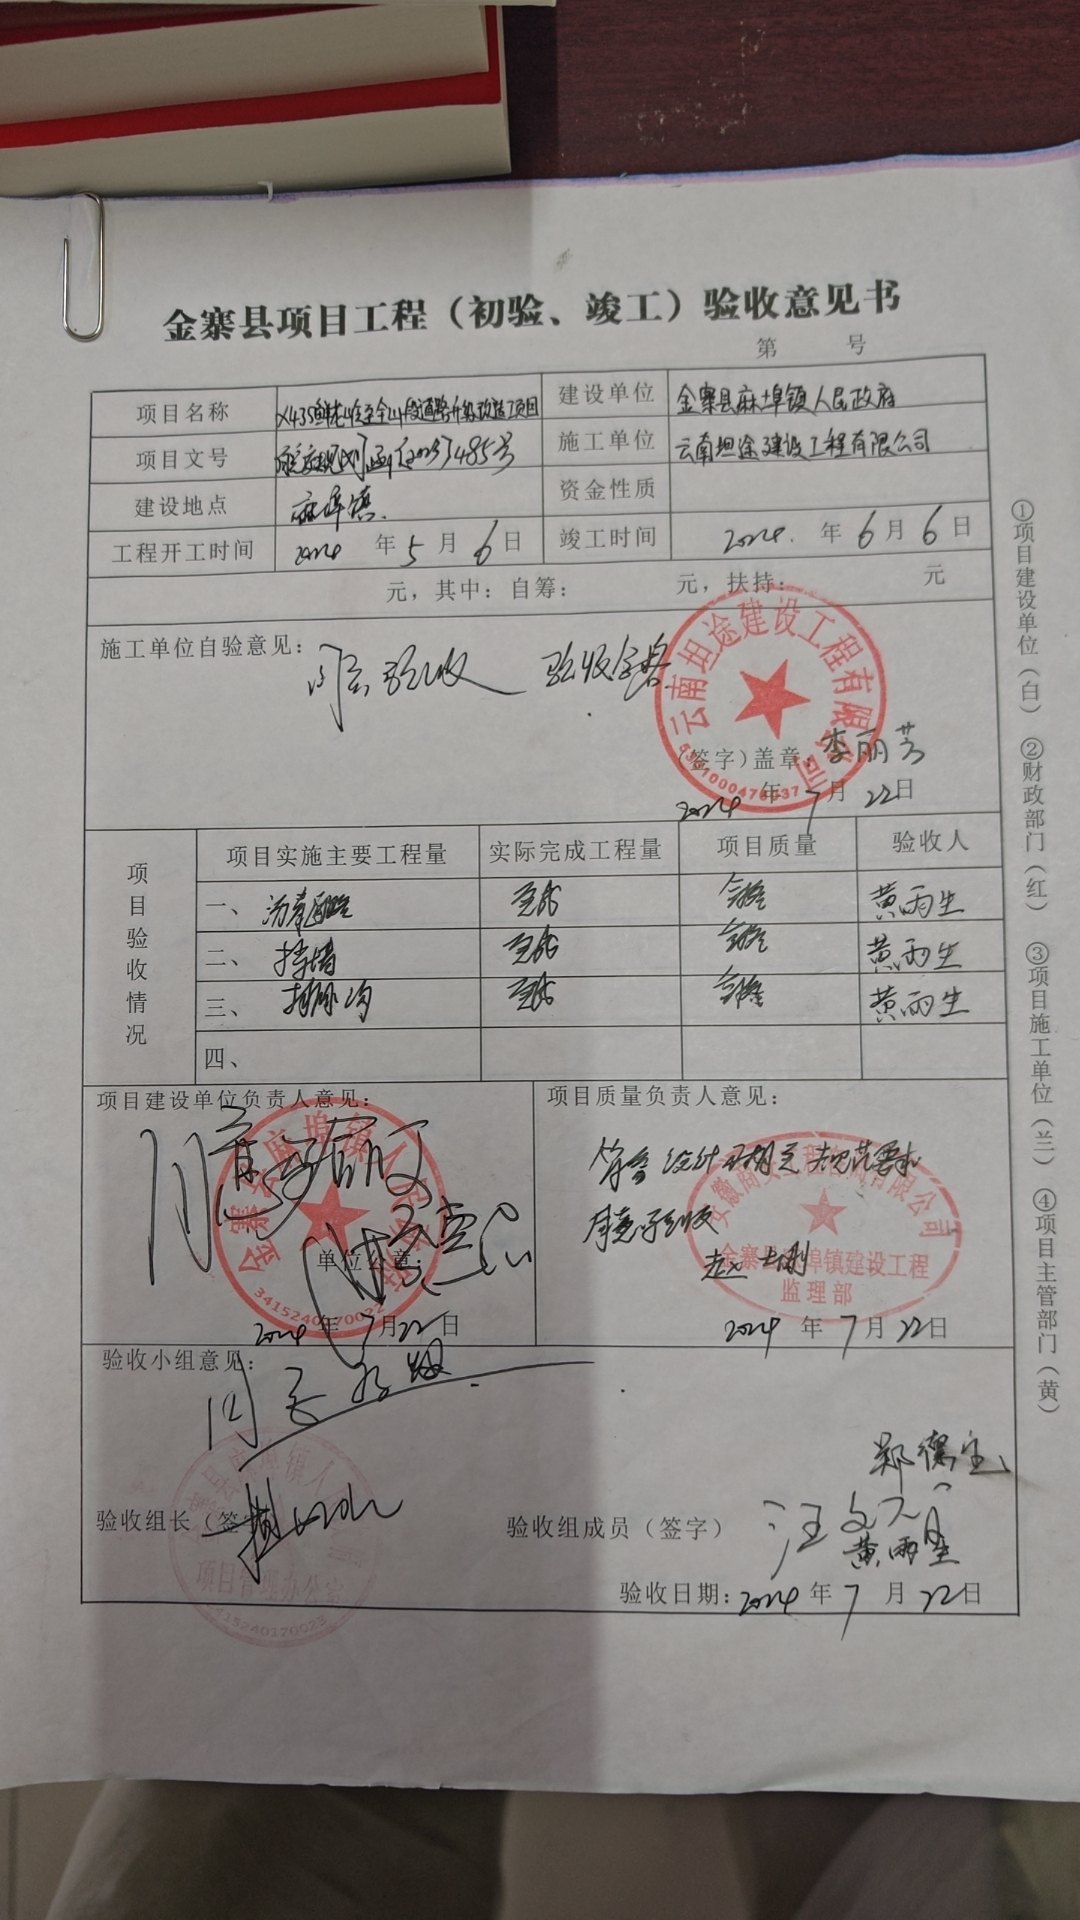 金寨县项目工程（初验、竣工）验收意见书
第 号
项目名称 X435鲜花岭至全山段道路升级改造工程项目 建设单位 金寨县麻埠镇人民政府
项目文号 485号 施工单位 云南坦途建设工程有限公司
建设地点 麻埠镇. 资金性质
工程开工时间 2024 年 5 月 6 日 竣工时间 2024. 年 6 月 6 日
元，其中：自筹： 元，扶持： 元
施工单位自验意见： 验收合格
云南坦途建设工程有限公司
(签字)盖章: 李丽芳
2024 年 7 月 22 日
项目验收情况 项目实施主要工程量 实际完成工程量 项目质量 验收人
一、 沥青道路 完成 合格 黄雨生
二、 挡墙 完成 合格 黄雨生
三、 排水沟 完成 合格 黄雨生
四、
项目建设单位负责人意见： 项目质量负责人意见：
同意
符合设计 规范要求
同意
单位公章：
3415240170022
金寨县麻埠镇建设工程
监理部
2024 年 7 月 22 日 2024 年 7 月 22 日
验收小组意见：
同意验收
郑德宝
验收组长（签 验收组成员（签字） 汪文明
黄雨生
项目管理办公室
验收日期: 2024 年 7 月 22 日
①项目建设单位（白） ②财政部门（红） ③项目施工单位（兰） ④项目主管部门（黄）